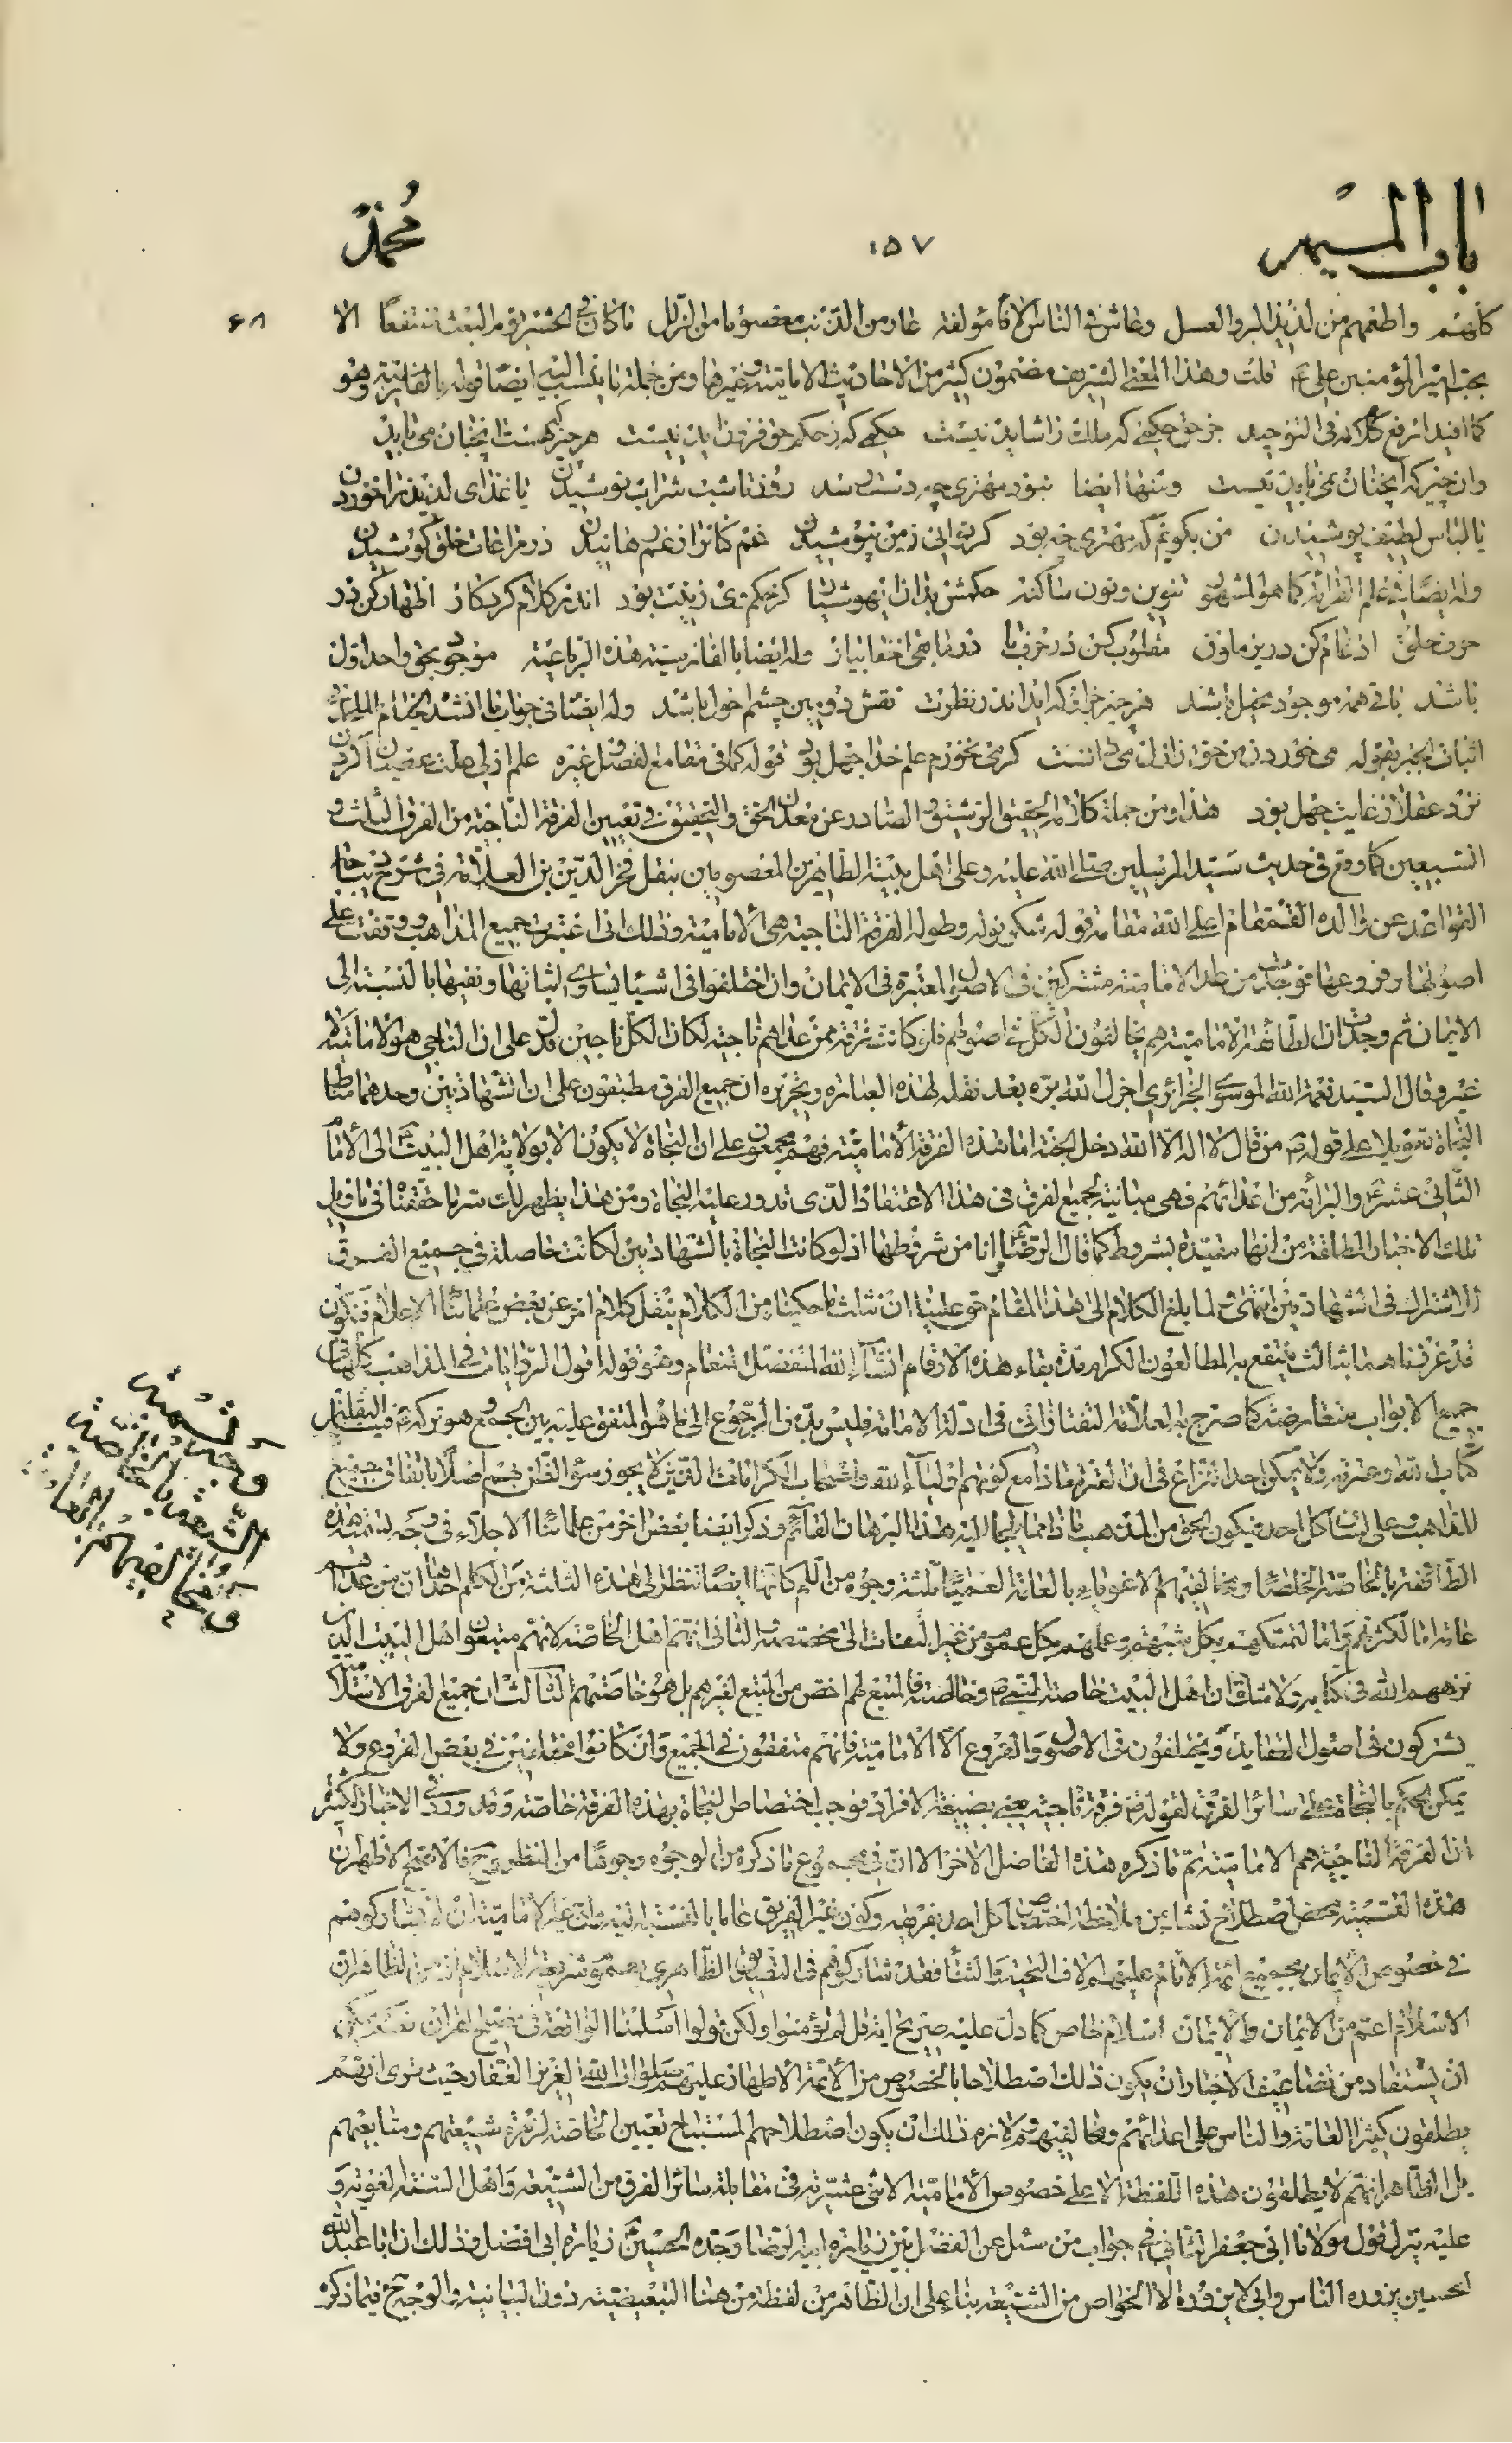 باب الميم
٥٧
محمد
٦٨
كأنهم واطعمهم من لذيذ البر والعسل وعاش في الناس آلافا مؤلفة عار من الذنب معصوما من الزلل ما كان في الحشر يوم البعث منتفعا الا
بحب امير المؤمنين علي ع قلت وهذا المعنى الشريف مضمون كثير من الاحاديث الامامية وغيرها ومن جملة ما ينسب اليه ايضا قوله بالفارسية وهو
كما افيد ارفع كلامه في التوحيد جز حق حكمى كه ملك را شايد نيست حكمى كه ز حكم حق فزون آيد نيست هر چيز كه هست آنچنان مى بايد
وان چيز كه آنچنان نمى بايد نيست ومنها ايضا نبود مهترى چو دست رسد روز تا شب شراب نوشيدن يا غذاى لذيذ را خوردن
يا لباس لطيف پوشيدن من بكويم كه مهترى چه بود كر توانى ز من نيوشيدن غمكانرا ز غم رهانيدن در مراعات خلق كوشيدن
وله ايضا في علم القرائة كما هو المشهور تنوين ونون ساكنه حكمش بدان اى هوشيار كز حكم وى زينت بود اندر كلام كردكار اظهار كن در
حرف حلق ادغام كن در يرملون مقلوب كن در حرف با در ما بقى اخفا بيار وله ايضا بالفارسية هذه الرباعية موجود بحق واحد اول
باشد باقى همه موجود مخيل باشد هر چيز جز او كه آيد اندر نظرت نقش دومين چشم احول باشد وله ايضا في جواب ما انشد الخيام الملحد في
اثبات الجبر بقوله مى خوردن من حق ز ازل مى دانست كر مى نخورم علم خدا جهل بود قوله كما في مقامع الفضل وغيره علم ازلى علت عصيان كردن
نزد عقلا ز غايت جهل بود هذا ومن جملة كلامه الحقيق الرشيق الصادر عن معدن الحق والتحقيق في تعيين الفرقة الناجية من الفرق الثلث و
السبعين كما وقع في حديث سيد المرسلين صلى الله عليه وعلى اهل بيته الطاهرين المعصومين بنقل فخر الدين بن العلامة في شرح ديباجة
القواعد عن والده القمقام اعلى الله مقامه قوله شكر قوله وطوله الفرقة الناجية هي الامامية وذلك اني اعتبرت جميع المذاهب ووقفت على
اصولها وفروعها فوجدت من عدا الامامية مشتركين في الاصول المعتبرة في الايمان وان اختلفوا في اشياء يساوى اثباتها ونفيها بالنسبة الى
الايمان ثم وجدت ان الطائفة الامامية هم يخالفون الكل في اصولهم فلو كانت فرقة ممن عداهم ناجية لكان الكل ناجين فدل على ان الناجي هو الامامية لا
غير وقال السيد نعمة الله الموسوي الجزائري اجزل الله بره بعد نقله لهذه العبارة وتحريره ان جميع الفرق مطبقون على ان الشهادتين وحدهما مناط
النجاة تعويلا على قوله ص من قال لا اله الا الله دخل الجنة اما هذه الفرقة الامامية فهم مجمعون على ان النجاة لا يكون الا بولاية اهل البيت ع الى الامام
الثاني عشر ع والبرائة من اعدائهم فهي مباينة لجميع الفرق في هذا الاعتقاد الذي تدور عليه النجاة ومن هذا يظهر لك سر ما حققناه في تأويل
تلك الاخبار المطلقة من انها مقيدة بشروط كما قال الرضا ع وانا من شروطها اذ لو كانت النجاة بالشهادتين لكانت حاصلة في جميع الفرق
للاشتراك في الشهادتين انتهى ولما بلغ الكلام الى هذا المقام حق علينا ان نثلث ما حكيناه من الكلام بنقل كلام اخر عن بعض علمائنا الاعلام فنكون
قد عززناهما بثالث ينتفع به المطالعون الكرام مدة بقاء هذه الارقام انشاء الله المتفضل المنعام وهو قوله اقول الروايات في المذاهب كلها في
جميع الابواب متعارضة كما صرح به العلامة التفتازاني في ادلة الامامة فليس بد من الرجوع الى ما هو المتفق عليه بين الجميع وهو تركه ص فينا الثقلين
كتاب الله وعترته ولا يمكن احدا نزاع في ان العترة ماذا مع كونهم اولياء الله واصحاب الكرامات الذين لا يجوز سوء الظن بهم اصلا باتفاق جميع
المذاهب على لسان كل احد فيكون الحق من المذهب ما ذهبوا اليه هذا البرهان القائم وذكر ايضا بعض اخر من علمائنا الاجلاء في وجه تسمية هذه
الطائفة بالخاصة الخلصاء ومخالفيهم الاغوياء بالعامة العمياء ثلثة وجوه من الكلم كانها ايضا تنظر الى هذه الثلثة من الكلم احدها ان من عداهم
عامة اما لكثرتهم واما لتمسكهم بكل شبهة وعملهم بكل عموم من غير التفات الى مخصصه الثاني انهم اهل الخاصة لانهم متبعون اهل البيت الذين
نزههم الله في كتابه ولا شك ان اهل البيت خاصة النبي ص وخالصته فالمتبع لهم اخص من المتبع لغيرهم بل هو خاصتهم الثالث ان جميع الفرق الاسلامية
يشتركون في اصول العقايد ويختلفون في الاصول والفروع الا الامامية فانهم متفقون في الجميع وان كانوا مختلفين في بعض الفروع ولا
يمكن الحكم بالنجاة على سائر الفرق لقوله ص فرقة ناجية يعني بصيغة الافراد فوجب اختصاص النجاة بهذه الفرقة خاصة وقد ورد في الاخبار الكثيرة
ان الفرقة الناجية هم الامامية تم ما ذكره هذا الفاضل الاخر الا ان في مجموع ما ذكره من الوجوه وجوها من النظر وح فالاصح الاظهر ان
هذه التسمية محض اصطلاح نشأ من ملاحظة اختصاص كل احد بفريقه وكون غير الفريق عاما بالنسبة اليه ملة غير الامامية ان لم يشاركوهم
في خصوص الايمان بجميع ائمة الانام عليهم الاف التحية والثناء فقد شاركوهم في التصديق الظاهري بعموم شريعة الاسلام ومن الظاهر ان
الاسلام اعم من الايمان والايمان اسلام خاص كما دلت عليه صريح اية قل لم تؤمنوا ولكن قولوا اسلمنا الواقعة في فصيح القران نعم يمكن
ان يستفاد من تضاعيف الاخبار ان يكون ذلك اصطلاحا بالخصوص من الائمة الاطهار عليهم صلوات الله العزيز الغفار حيث ترى انهم
يطلقون كثيرا العامة والناس على اعدائهم ومخالفيهم ولازم ذلك ان يكون اصطلاحهم المستباح تعيين الخاصة لزمرة شيعتهم ومتابعيهم
بل الظاهر انهم لا يطلقون هذه اللفظة الا على خصوص الامامية الاثنى عشرية في مقابلة سائر الفرق من الشيعة واهل السنة الغوية و
عليه ينزل قول مولانا ابي جعفر الثاني ع في جواب من سئل عن الفضل بين زيارة ابيه الرضا وجده الحسين ع زيارة ابي افضل وذلك ان ابا عبد الله
الحسين يزوره الناس وابي لا يزوره الا الخواص من الشيعة بناء على ان الظاهر من لفظة من هنا التبعيضية دون البيانية والوجه ح فيما ذكره
وجه تسمية
الشيعة بالخاصة
ومخالفيهم بالعامة